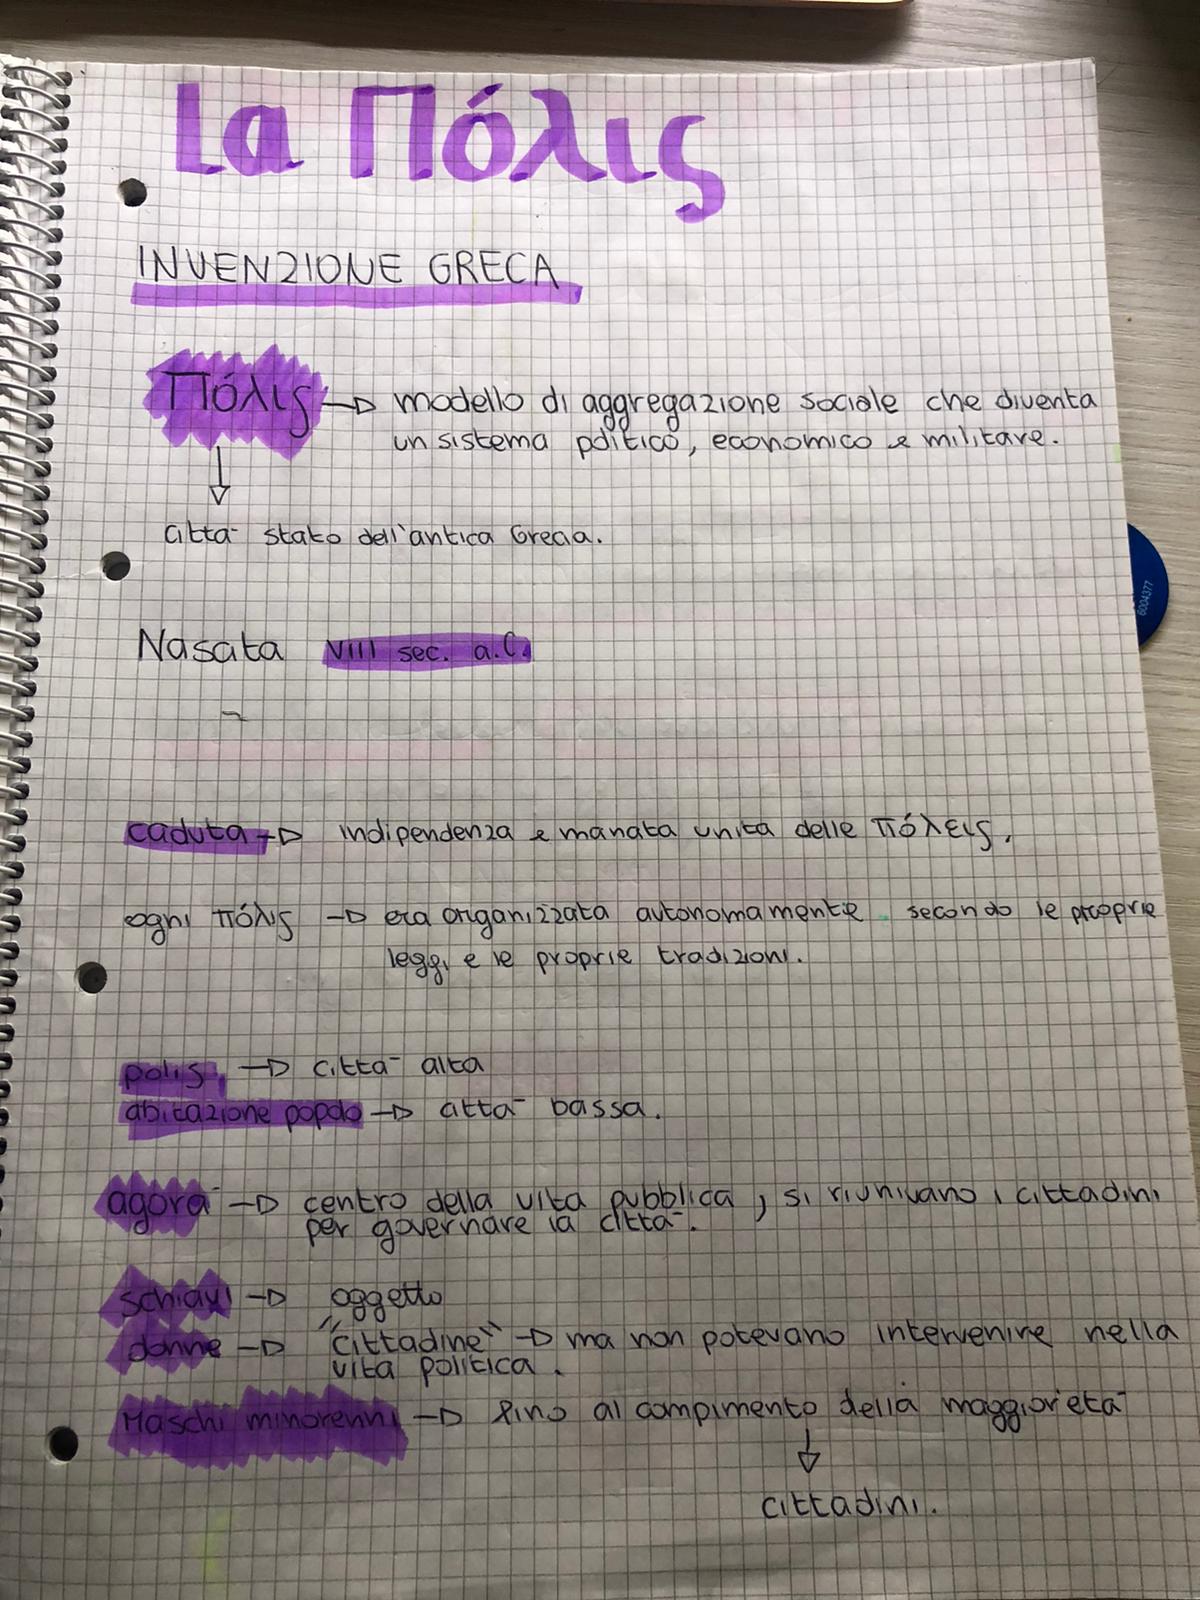 La Πόλις
INVENZIONE GRECA
Πόλις → modello di aggregazione sociale che diventa
un sistema politico, economico e militare.
↓
città stato dell'antica Grecia.
Nasata VIII sec. a.C.
caduta → indipendenza e manata unita delle πόλεις.
ogni πόλις → era organizzata autonomamente secondo le proprie
leggi e le proprie tradizioni.
polis → città alta
abitazione popolo → città bassa.
agorà → centro della vita pubblica, si riunivano i cittadini
per governare la città.
schiavi → oggetto
donne → "cittadine" → ma non potevano intervenire nella
vita politica.
Maschi minorenni → fino al compimento della maggior'età
↓
cittadini.
6004377